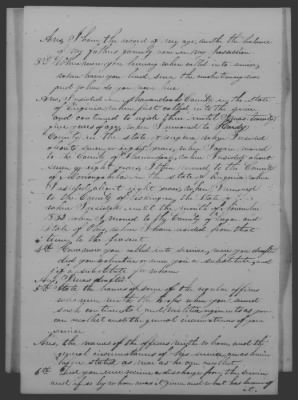 Ans, I have the record of my age, with the balance
of my fathers family now in my possession
3rd Where were you living when called into service,
where have you lived since the revolutionary war
and where do you now live
Ans, I resided in Shenandoah County in the State
of Virginia when first called into the service
and continued to reside there until
five years ago when I removed to Hardy
County in the state of Virginia when I resided
about seven or eight years, when I again moved
to the County of Shenandoah, where I resided about
seven or eight years, I then removed to the County
of Rockingham in the State of Virginia where
I resided about eight years when I removed
to the County of in the State of
where I resided until the month of November
1833 when I moved to County of Logan and
State of Ohio, where I have resided from that
time to the present
4th How were you called into service, were you drafted
did you volunteer or were you a substitute, and
if a substitute for whom
Ans, I was drafted
5th State the names of some of the regular officers
who were with the troops when you served
such continental and militia regiments as you
can recollect and the general circumstances of your
service
Ans, the names of the officers with whom, and the
general circumstances of his service, are herein
before stated as near as he can recollect
6th Did you ever receive a discharge from the service
and if so by whom was it given and what has become of
it